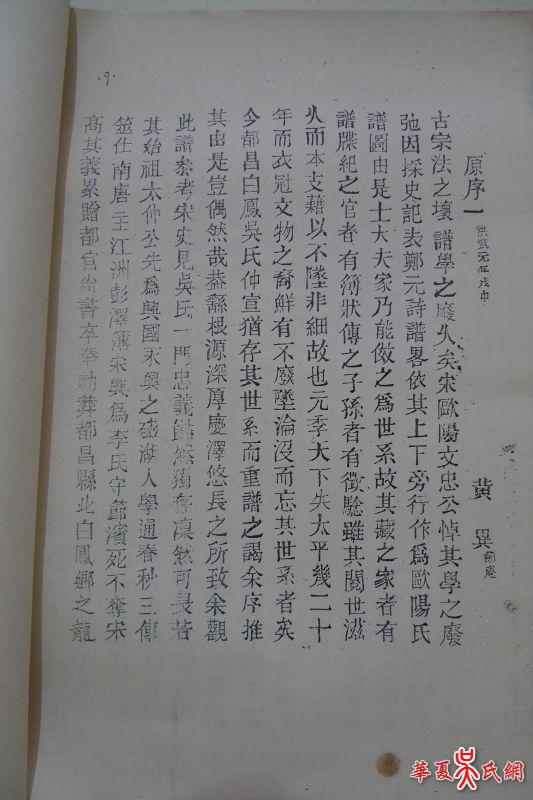 .9.
原序一 洪武元年戊申 黄異
古宗法之壞譜學之廢久矣宋歐陽文忠公悼其學之廢
弛因探史記表鄭元詩譜畧依其上下旁行作爲歐陽氏
譜圖由是士大夫家乃能倣之爲世系故其藏之家者有
譜牒紀之官者有簿狀傳之子孫者有徵驗雖其閱世滋
久而本支藉以不墜非細故也元季天下失太平幾二十
年而衣冠文物之裔鮮有不廢墜淪沒而忘其世系者矣
今都昌白鳳吳氏仲宣猶存其世系而重譜之謁余序推
其由是豈偶然哉葢繇根源深厚慶澤悠長之所致余觀
此譜參考宋史見吳氏一門忠義歸然獨存凜然可畏若
其始祖太仲公先爲興國永興之磁湖人學通春秋三傳
筮仕南唐主江洲彭澤簿宋興爲李氏守節濱死不奪宋
高其義累贈都官尙書卒奉勅葬都昌縣北白鳳鄉之龍
華夏吳氏網